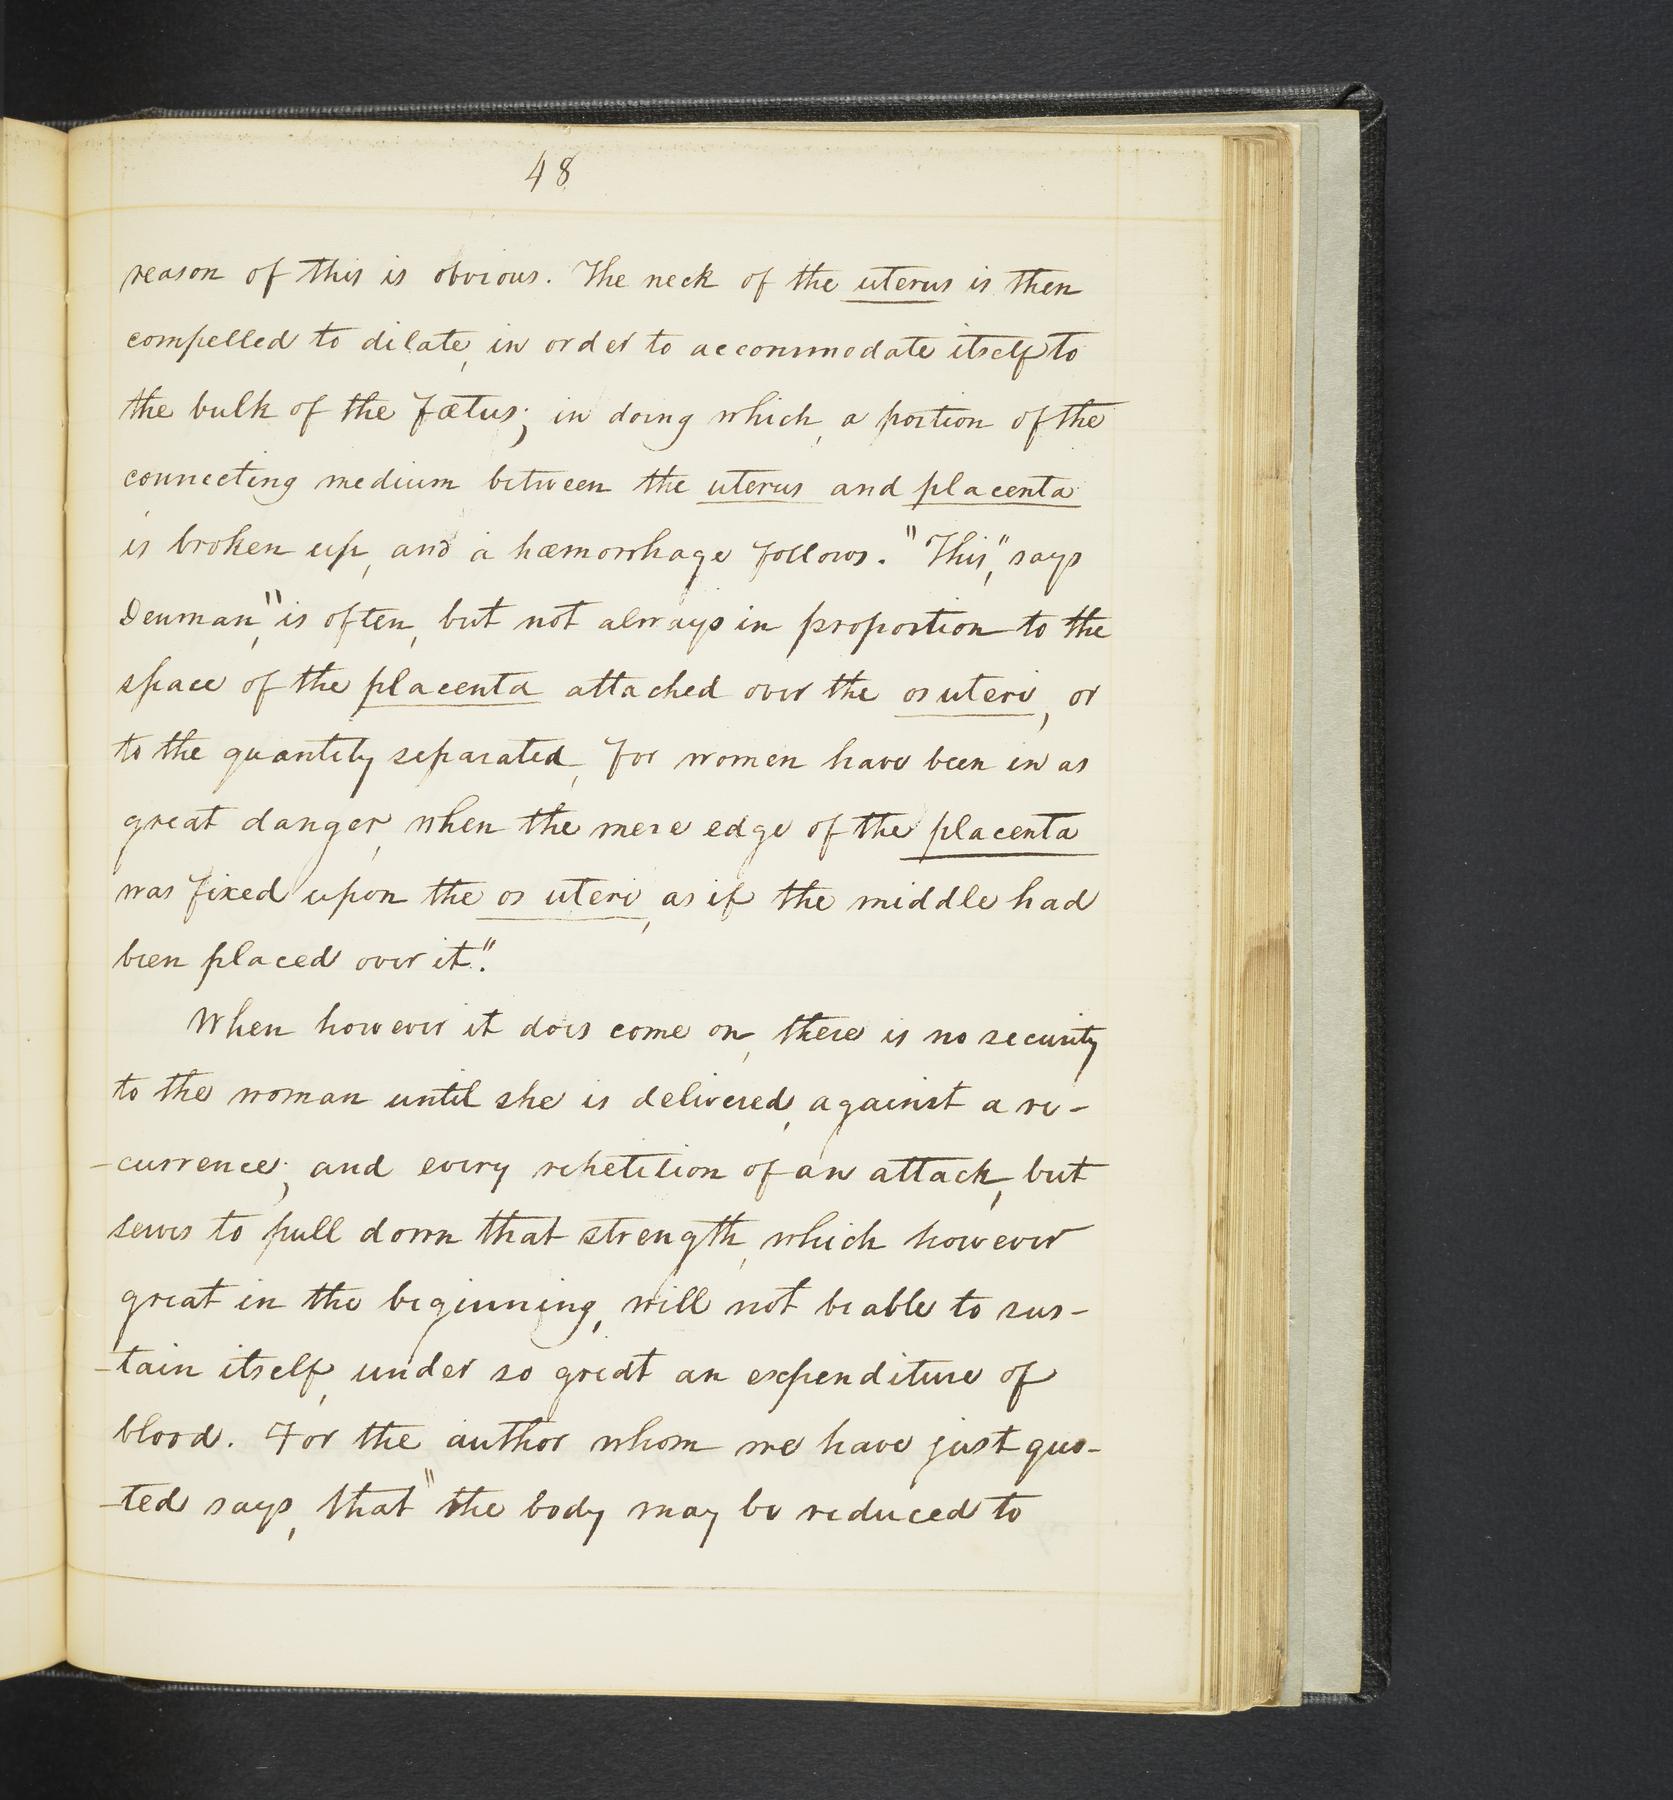 48
reason of this is obvious. The neck of the uterus is then
compelled to dilate, in order to accommodate itself to
the bulk of the fœtus; in doing which, a portion of the
connecting medium between the uterus and placenta
is broken up, and a hæmorrhage follows. "This," says
Denman, "is often, but not always in proportion to the
space of the placenta attached over the os uteri, or
to the quantity separated, for women have been in as
great danger, when the mere edge of the placenta
was fixed upon the os uteri, as if the middle had
been placed over it".
When however it does come on, there is no security
to the woman until she is delivered, against a re-
-currence; and every repetition of an attack, but
serves to pull down that strength, which however
great in the beginning, will not be able to sus-
-tain itself, under so great an expenditure of
blood. For the author whom we have just quo-
-ted says, that "the body may be reduced to